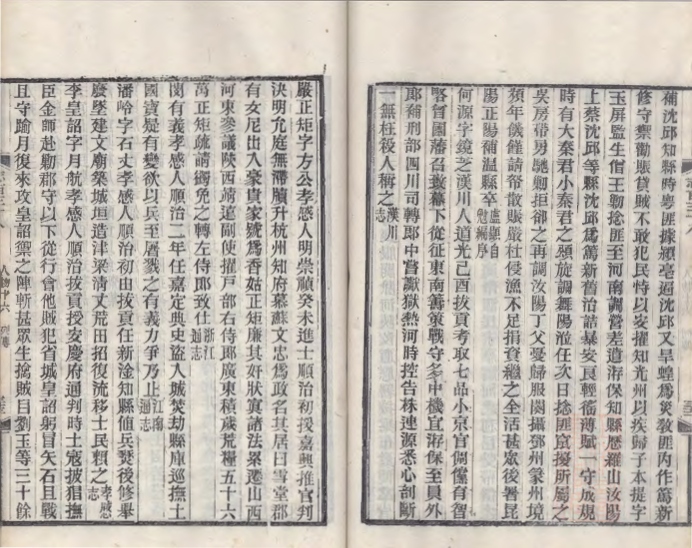 補沈邱知縣時粵匪據潁亳逼沈邱又旱蝗爲災教匪內作篤新
修守禦勸賑貸賊不敢犯民恃以安擢知光州以疾歸子本提字
玉屏監生僧王勦捻匪至河南調營差濬保知縣歷羅山汝陽
上蔡沈邱等縣沈邱爲篤新舊治詰暴安良輕徭薄賦一守成規
時有大秦君小秦君之頌旋調舞陽涖任次日捻匪竄擾所屬之
吳房帶勇馳勦拒卻之再調汝陽丁父憂歸服闋攝鄧州篆州境
頻年饑饉請帑散賑嚴杜侵漁不足捐資繼之全活甚眾後署昆
陽正陽補溫縣卒
盧顯自
勉編序
何源字鏡芝漢川人道光己酉拔貢考取七品小京官倜儻有智
畧曾國藩召致幕下從征東南籌策戰守多中機宜濬保至員外
郎補刑部四川司轉郎中嘗讞獄熱河時控告林連源悉心剖斷
一無枉殺人稱之
漢川
志
嚴正矩字方公孝感人明崇禎癸未進士順治初授嘉興推官判
決明允庭無滯牘升杭州知府慕蘇文忠爲政名其居曰雪堂郡
有女尼出入豪貴家號爲香姑正矩廉其奸狀寘諸法累遷山西
河東參議陝西靖遠副使擢戶部右侍郎廣東積歲荒糧五十六
萬正矩疏請蠲免之轉左侍郎致仕
浙江
通志
閔有義孝感人順治二年任嘉定典史盜入城焚劫縣庫巡撫土
國寶疑有變欲以兵至屠戮之有義力爭乃止
江南
通志
潘岭字石丈孝感人順治初由拔貢任新淦知縣値兵燹後修舉
廢墜建文廟築城垣造津梁清丈荒田招復流移士民賴之
孝感
志
李皇詔字月航孝感人順治拔貢授安慶府通判時土寇披猖撫
臣金師赴勦郡守以下從行會他賊犯省城皇詔躬冒矢石且戰
且守踰月復來攻皇詔禦之陣斬甚眾生擒賊目劉玉等三十餘
人物十六